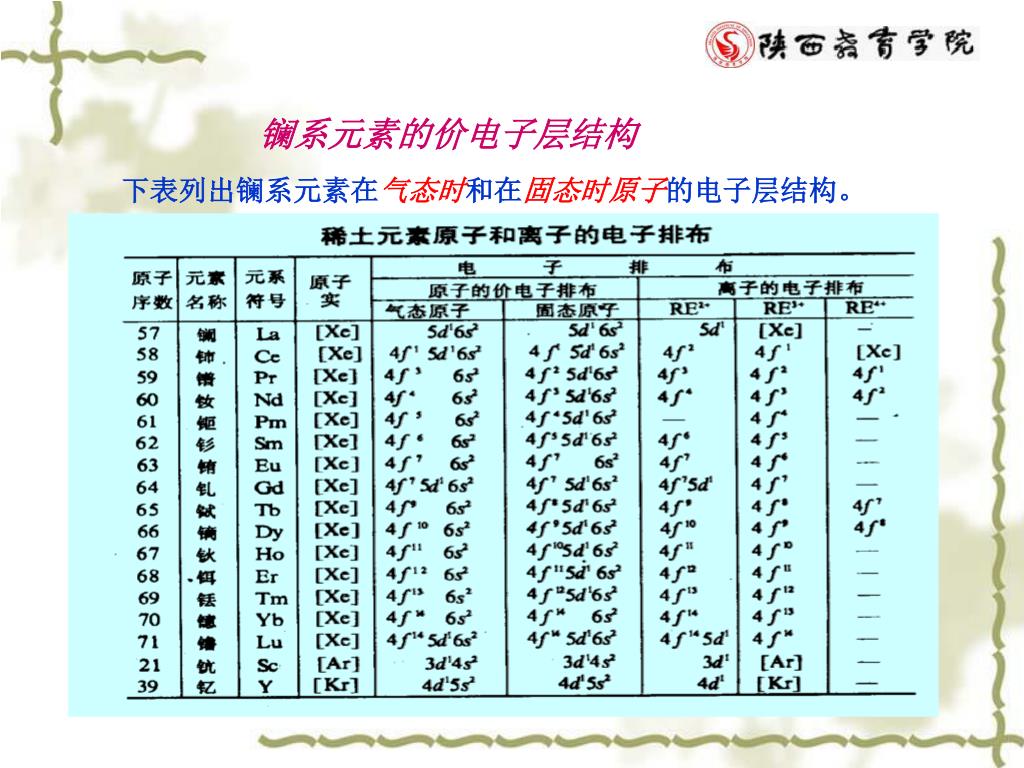 陕西教育学院
镧系元素的价电子层结构
下表列出镧系元素在气态时和在固态时原子的电子层结构。
稀土元素原子和离子的电子排布
原子序数 元素名称 元系符号 原子实 电子排布
原子的价电子排布 离子的电子排布
气态原子 固态原子 RE²⁺ RE³⁺ RE⁴⁺
57 镧 La [Xe] 5d¹6s² 5d¹6s² 5d¹ [Xe] —
58 铈 Ce [Xe] 4f¹ 5d¹6s² 4f¹ 5d¹6s² 4f² 4f¹ [Xe]
59 镨 Pr [Xe] 4f³ 6s² 4f² 5d¹6s² 4f³ 4f² 4f¹
60 钕 Nd [Xe] 4f⁴ 6s² 4f³ 5d¹6s² 4f⁴ 4f³ 4f²
61 钷 Pm [Xe] 4f⁵ 6s² 4f⁴ 5d¹6s² — 4f⁴ —
62 钐 Sm [Xe] 4f⁶ 6s² 4f⁵ 5d¹6s² 4f⁶ 4f⁵ —
63 铕 Eu [Xe] 4f⁷ 6s² 4f⁷ 6s² 4f⁷ 4f⁶ —
64 钆 Gd [Xe] 4f⁷ 5d¹6s² 4f⁷ 5d¹6s² 4f⁷5d¹ 4f⁷ —
65 铽 Tb [Xe] 4f⁹ 6s² 4f⁸ 5d¹6s² 4f⁹ 4f⁸ 4f⁷
66 镝 Dy [Xe] 4f¹⁰ 6s² 4f⁹ 5d¹6s² 4f¹⁰ 4f⁹ 4f⁸
67 钬 Ho [Xe] 4f¹¹ 6s² 4f¹⁰5d¹6s² 4f¹¹ 4f¹⁰ —
68 铒 Er [Xe] 4f¹² 6s² 4f¹¹5d¹6s² 4f¹² 4f¹¹ —
69 铥 Tm [Xe] 4f¹³ 6s² 4f¹²5d¹6s² 4f¹³ 4f¹² —
70 镱 Yb [Xe] 4f¹⁴ 6s² 4f¹⁴ 6s² 4f¹⁴ 4f¹³ —
71 镥 Lu [Xe] 4f¹⁴5d¹6s² 4f¹⁴ 5d¹6s² 4f¹⁴5d¹ 4f¹⁴ —
21 钪 Sc [Ar] 3d¹4s² 3d¹4s² 3d¹ [Ar] —
39 钇 Y [Kr] 4d¹5s² 4d¹5s² 4d¹ [Kr] —